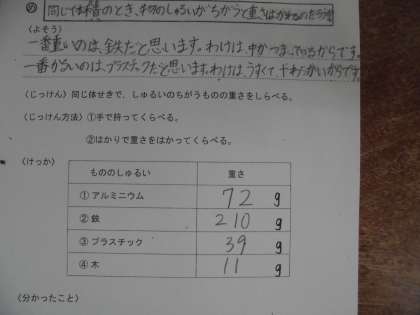 め 同じ体積のとき、もののしゅるいがちがうと重さはかわるのだろうか
(よそう)
一番重いのは、鉄だと思います。わけは、中がつまっているからです。
一番かるいのは、プラスチックだと思います。わけは、うすくて、やわらかいからです。
(じっけん) 同じ体せきで、しゅるいのちがうものの重さをしらべる。
(じっけん方法) ①手で持ってくらべる。
②はかりで重さをはかってくらべる。
(けっか)
もののしゅるい 重さ
① アルミニウム 72 g
② 鉄 210 g
③ プラスチック 39 g
④ 木 11 g
(分かったこと)